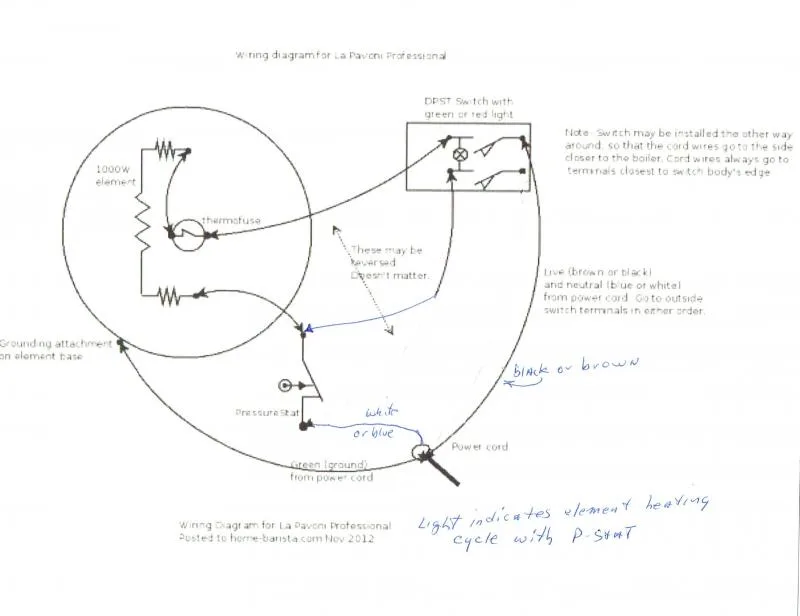 Wiring diagram for La Pavoni Professional
DPST Switch with
green or red light
Note: Switch may be installed the other way
around, so that the cord wires go to the side
closer to the boiler. Cord wires always go to
terminals closest to switch body's edge.
1000W
element
thermofuse
These may be
reversed.
Doesn't matter.
Live (brown or black)
and neutral (blue or white)
from power cord. Go to outside
switch terminals in either order.
Grounding attachment
on element base
BLACK or BROWN
PressureStat
white
or blue
Power cord
Green (ground)
from power cord
Light indicates element heating
cycle with P-STAT
Wiring Diagram for La Pavoni Professional
Posted to home-barista.com Nov 2012